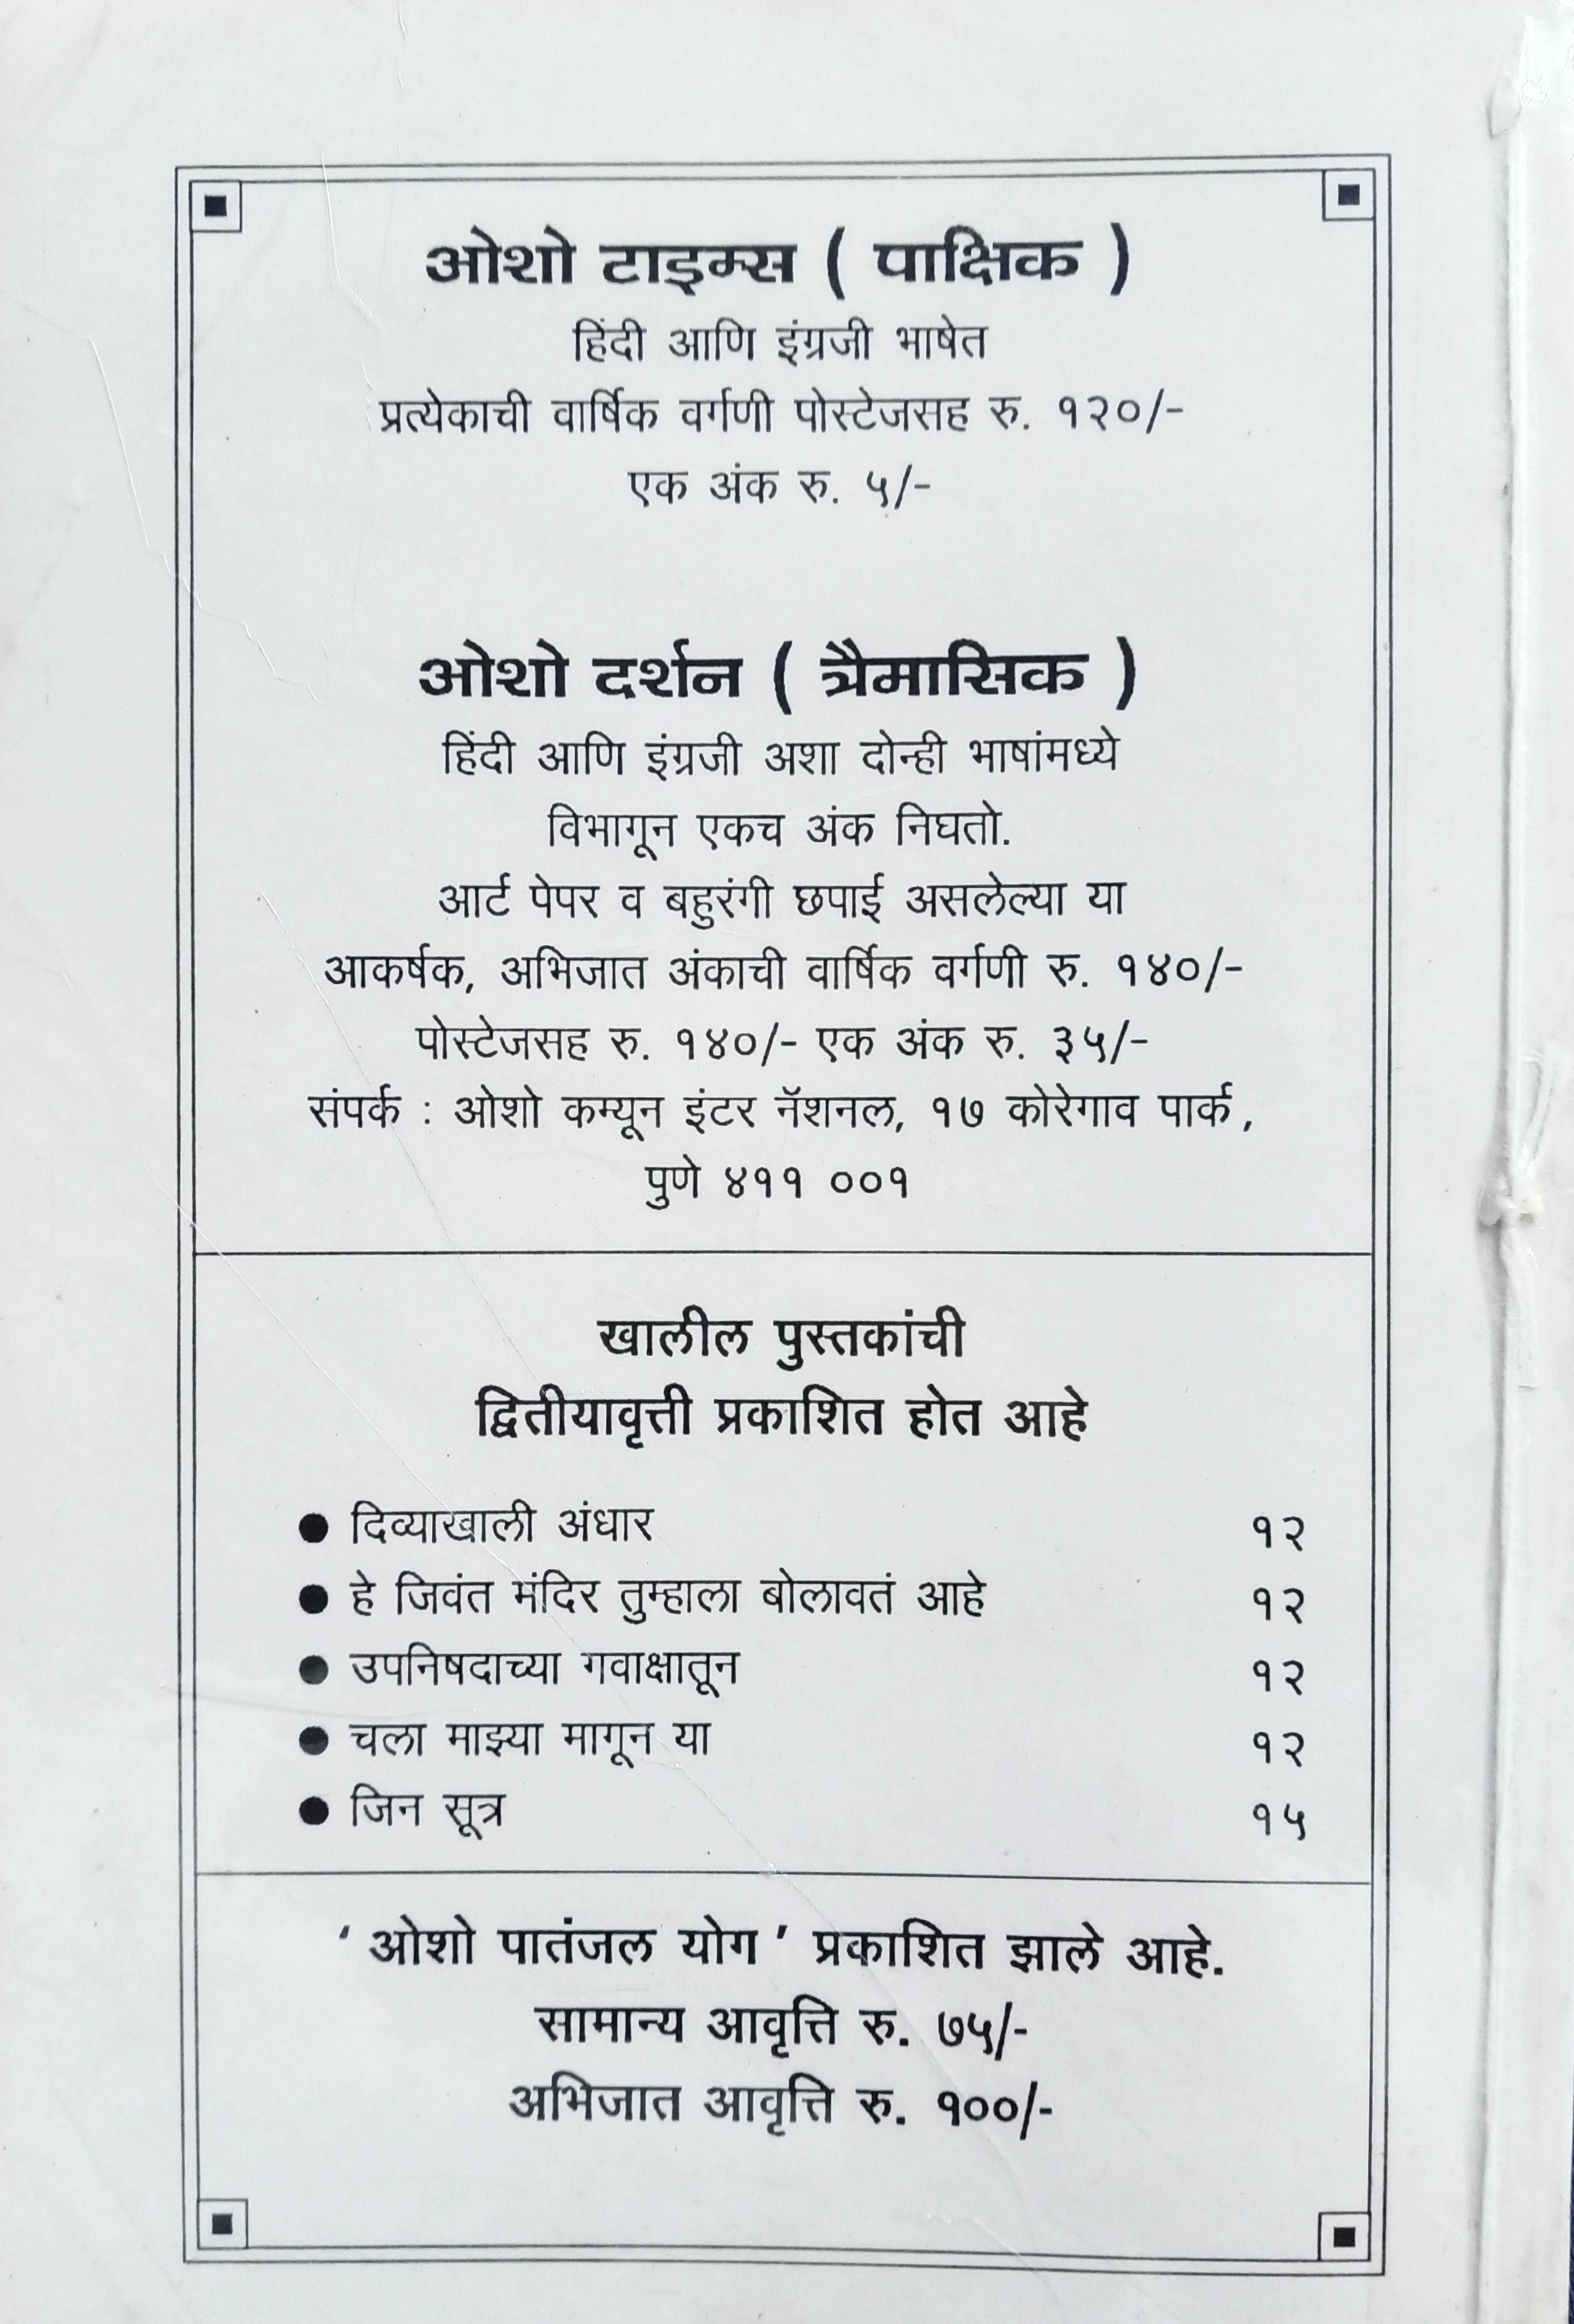 ओशो टाइम्स ( पाक्षिक )
हिंदी आणि इंग्रजी भाषेत
प्रत्येकाची वार्षिक वर्गणी पोस्टेजसह रु. १२०/-
एक अंक रु. ५/-
ओशो दर्शन ( त्रैमासिक )
हिंदी आणि इंग्रजी अशा दोन्ही भाषांमध्ये
विभागून एकच अंक निघतो.
आर्ट पेपर व बहुरंगी छपाई असलेल्या या
आकर्षक, अभिजात अंकाची वार्षिक वर्गणी रु. १४०/-
पोस्टेजसह रु. १४०/- एक अंक रु. ३५/-
संपर्क : ओशो कम्यून इंटर नॅशनल, १७ कोरेगाव पार्क,
पुणे ४११ ००१
खालील पुस्तकांची
द्वितीयावृत्ती प्रकाशित होत आहे
● दिव्याखाली अंधार १२
● हे जिवंत मंदिर तुम्हाला बोलावतं आहे १२
● उपनिषदाच्या गवाक्षातून १२
● चला माझ्या मागून या १२
● जिन सूत्र १५
‘ ओशो पातंजल योग ’ प्रकाशित झाले आहे.
सामान्य आवृत्ति रु. ७५/-
अभिजात आवृत्ति रु. १००/-